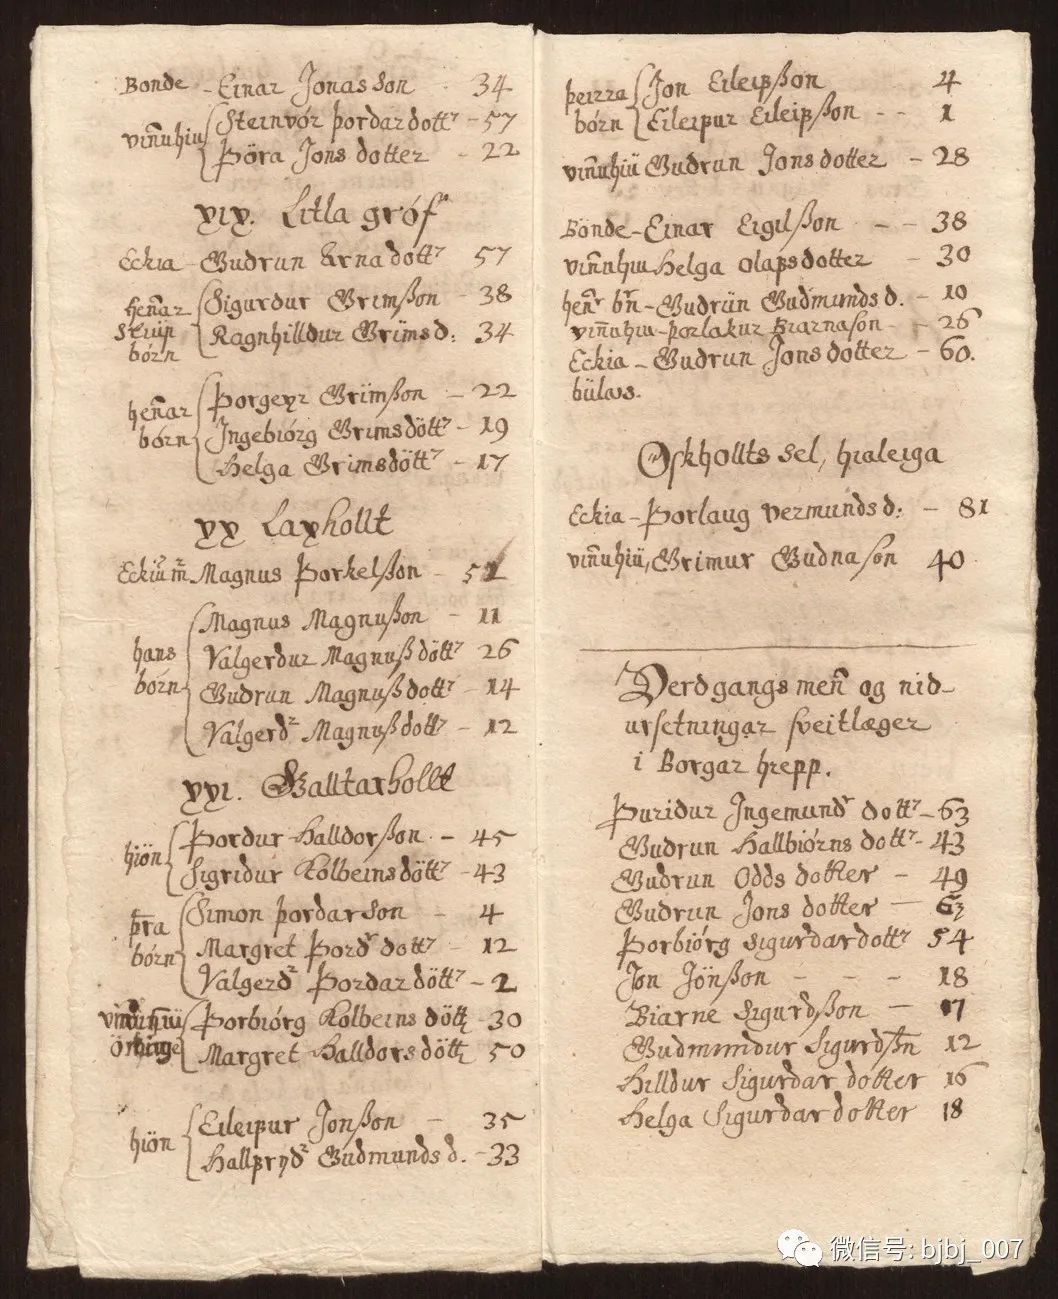 Bonde - Einar Jonas Son 34
vin̄uhiu Steinvór Þordar dottr - 57
Þöra Jons dotter - 22
XIX. Litla gróf
Eckia - Gudrun Arna dottr 57
hen̄ar Sigurdur Grimßon - 38
Stiúp börn Ragnhilldur Grims d: 34
hen̄ar börn Þorgeyr Grimßon - 22
Ingebiórg Grims döttr - 19
Helga Grims döttr - 17
XX Laxhollt
Magnus Þorkelßon - 51
hans börn Magnus Magnußon - 11
Valgerdur Magnuß döttr 26
Gudrun Magnuß dottr - 14
Valgerdr Magnuß dottr - 12
XXI. Galltarhollt
hión Þordur Halldorßon - 45
Sigridur Kolbeins döttr - 43
þra börn Simon Þordar Son - 4
Margret Þordr dottr - 12
Valgerdr Þordar döttr - 2
Þorbiórg Kolbeins dött 30
Margret Halldors dött 50
hión Eileifur Jonßon - 35
Hallfrydr Gudmunds d. - 33
þeirra börn Jon Eileifßon 4
Eileifur Eileifßon - - 1
vin̄uhiú Gudrun Jons dotter - 28
Bonde - Einar Eigilßon - - 38
vin̄uhiu Helga Olafs dotter - 30
hen̄r br̄n - Gudrún Gudmunds d. - 10
vin̄uhiu - Þorlakur Biarnason - 26
Eckia - Gudrun Jons dotter - 60.
búlaus.
Öskhollts Sel, hialeiga
Eckia - Þorlaug Vermunds d: - 81
vin̄uhiú, Grimur Gudnason 40
Verdgangs men̄ og nid-
ursetningar sveitlæger
i Borgar hrepp.
Þuridur Ingemundr dottr - 63
Gudrun Hallbiórns dottr - 43
Gudrun Odds dotter - 49
Gudrun Jons dotter - 63
Þorbiórg Sigurdar dottr 54
Jon Jönßon - - - 18
Biarne Sigurdßon - 17
Gudmundur Sigurdßn 12
Hilldur Sigurdar dotter 16
Helga Sigurdar dotter 18
微信号: bjbj_007